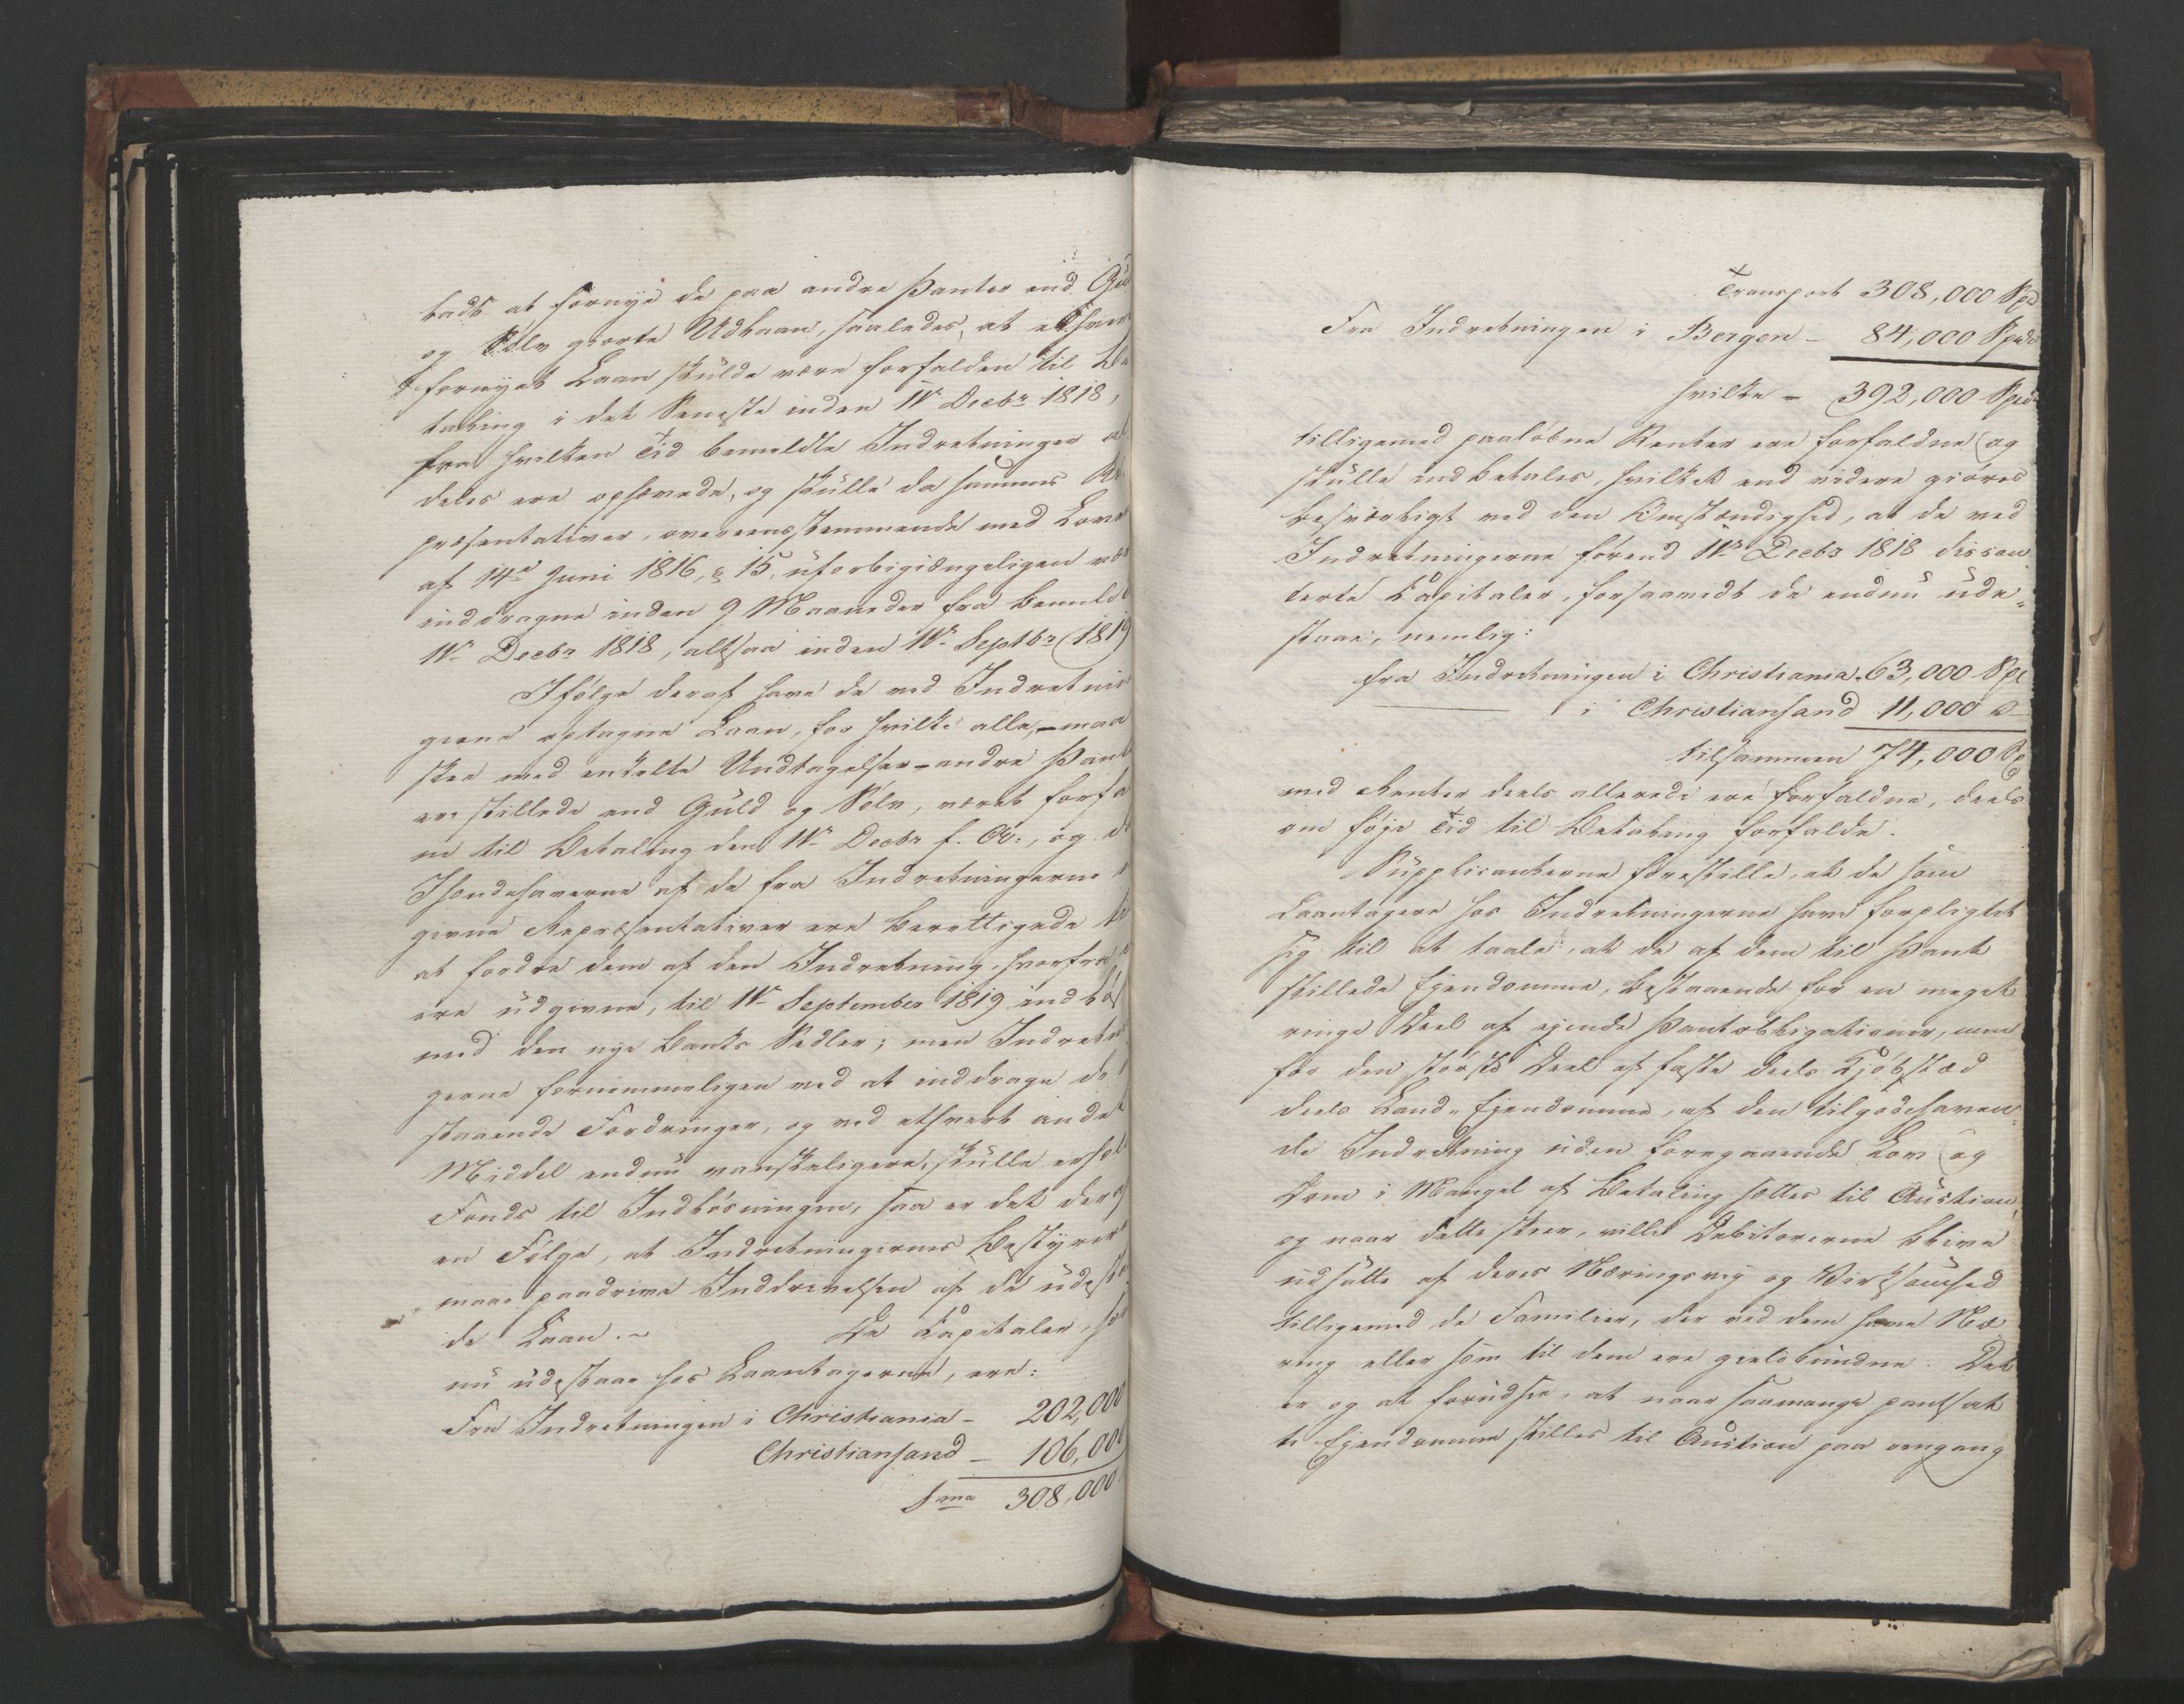 ladt at fornye de paa andre Panter end Gul
og Sølv giorte Udlaan, saaledes, at ethvert
fornyet Laan skulde være forfalden til Be
taling i det Seneste inden 11te Decbr 1818,
fra hvilken Tid bemeldte Indretninger al
deles ere ophævede, og skulle da sammes Re
præsentativer, overeensstemmende med Loven
af 14de Juni 1816, § 15, uforbigiængeligen være
inddragne inden 9 Maaneder fra bemeldte
11te Decbr 1818, altsaa inden 11te Septbr 1819
Ifølge deraf have de ved Indretnin
gerne optagne Laan, for hvilke alle, - maa
skee med enkelte Undtagelser - andre Pante
ere stillede end Guld og Sølv, været forfald
ne til Betaling den 11te Decbr f. A:, og
Ihændehaverne af de fra Indretningerne
givne Repræsentativer ere berettigede til
at fordre dem af den Indretning, hvorfra
ere udgivne, til 11te September 1819 indløst
med den nye Banks Sedler; men Indretnin
gerne fornemmeligen ved at inddrage de
staaende Fordringer, og ved ethvert andet
Middel endnu vanskeligere, skulle erholde
Fonds til Indløsningen, saa er det deraf
en Følge, at Indretningernes Bestyrere
maae paadrive Inddrivelsen af de udestaa
de Laan. ~ De Capitaler, som
nu udestaae hos Laantagerne, ere:
Fra Indretningen i Christiania - 202,000
Christiansand - 106,000
Sma 308,000
Transport 308,000 Spd
Fra Indretningen i Bergen - 84,000 Spd
hvilke - 392,000 Spd
tilligemed paaløbne Renter ere forfaldne og
skulle indbetales, hvilket end videre giøres
besværligt ved den Omstændighed, at de ved
Indretningerne førend 11te Decbr 1818 discon
terte Capitaler, forsaavidt de endnu ude-
staae, nemlig:
fra Indretningen i Christiania 63,000 Spd
i Christiansand 11,000 d
tilsammen 74,000 Sp
med Renter deels allerede ere forfaldne, deels
om føje Tid til Betaling forfalde.
Supplicanterne forestille, at de som
Laantagere hos Indretningerne have forpligtet
sig til at taale, at de af dem til Pant
stillede Ejendomme, bestaaende for en meget
ringe Deel af ejende Pantobligationer, men
for den største Deel af faste deels Kjøbstæd
deels Land-Ejendomme, af den tilgodehaven
de Indretning uden foregaaende Lov og
Dom i Mangel af Betaling sættes til Auction,
og naar dette skeer, ville Debitorerne blive
udsatte af deres Næringsvej og Virksomhed
tilligemed de Familier, der ved dem have Næ
ring eller som til dem ere gieldbundne. Det
er og at forudsee, at naar saamange pantsat
te Ejendomme stilles til Auction paa eengang